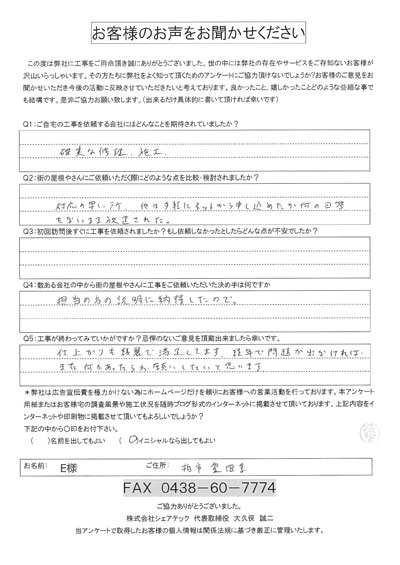 お客様のお声をお聞かせください
この度は弊社に工事をご用命頂き誠にありがとうございました。世の中には弊社の存在やサービスをご存知ないお客様が
沢山いらっしゃいます。その方たちに弊社をよく知って頂くためのアンケートにご協力頂けないでしょうか?お客様のご意見をお
聞かせいただき今後の活動に反映させていただきたいと考えております。良かったこと、嬉しかったことどのような些細な事で
も結構です。是非ご協力お願い致します。(出来るだけ具体的に書いて頂ければ幸いです)
Q1:ご自宅の工事を依頼する会社にはどんなことを期待されていましたか?
確実な修理、施工
Q2:街の屋根やさんにご依頼いただく際にどのような点を比較・検討されましたか?
対応の早い所、他は手軽にネットから申し込めたが何の回答
もないまま放送された。
Q3:初回訪問後すぐに工事を依頼されましたか?もし依頼しなかったとしたらどんな点が不安でしたか?
Q4:数ある会社の中から街の屋根やさんに工事をご依頼いただいた決め手は何ですか
担当の方の説明に納得したので。
Q5:工事が終わってみていかがですか?忌憚のないご意見を頂戴出来ましたら幸いです。
仕上がりも綺麗で満足してます。経年で問題が出なければ。
また何かあったらお願いしたいと思います
*弊社は広告宣伝費を極力かけない為にホームページだけを頼りにお客様への営業活動を行っております。本アンケート
用紙またはお客様宅の調査風景や施工状況を随時ブログ形式のインターネットに掲載させて頂いております。上記内容をイ
ンターネットや印刷物に掲載させて頂いてもよろしいでしょうか?
下記の中から〇印をお付下さい。
( )名前を出してもよい (〇)イニシャルなら出してもよい
お名前: E様 ご住所: 柏市豊四季
FAX 0438-60-7774
ご協力ありがとうございました。
株式会社シェアテック 代表取締役 大久保 誠二
当アンケートで取得したお客様の個人情報は関係法規に基づき厳正に管理いたします。